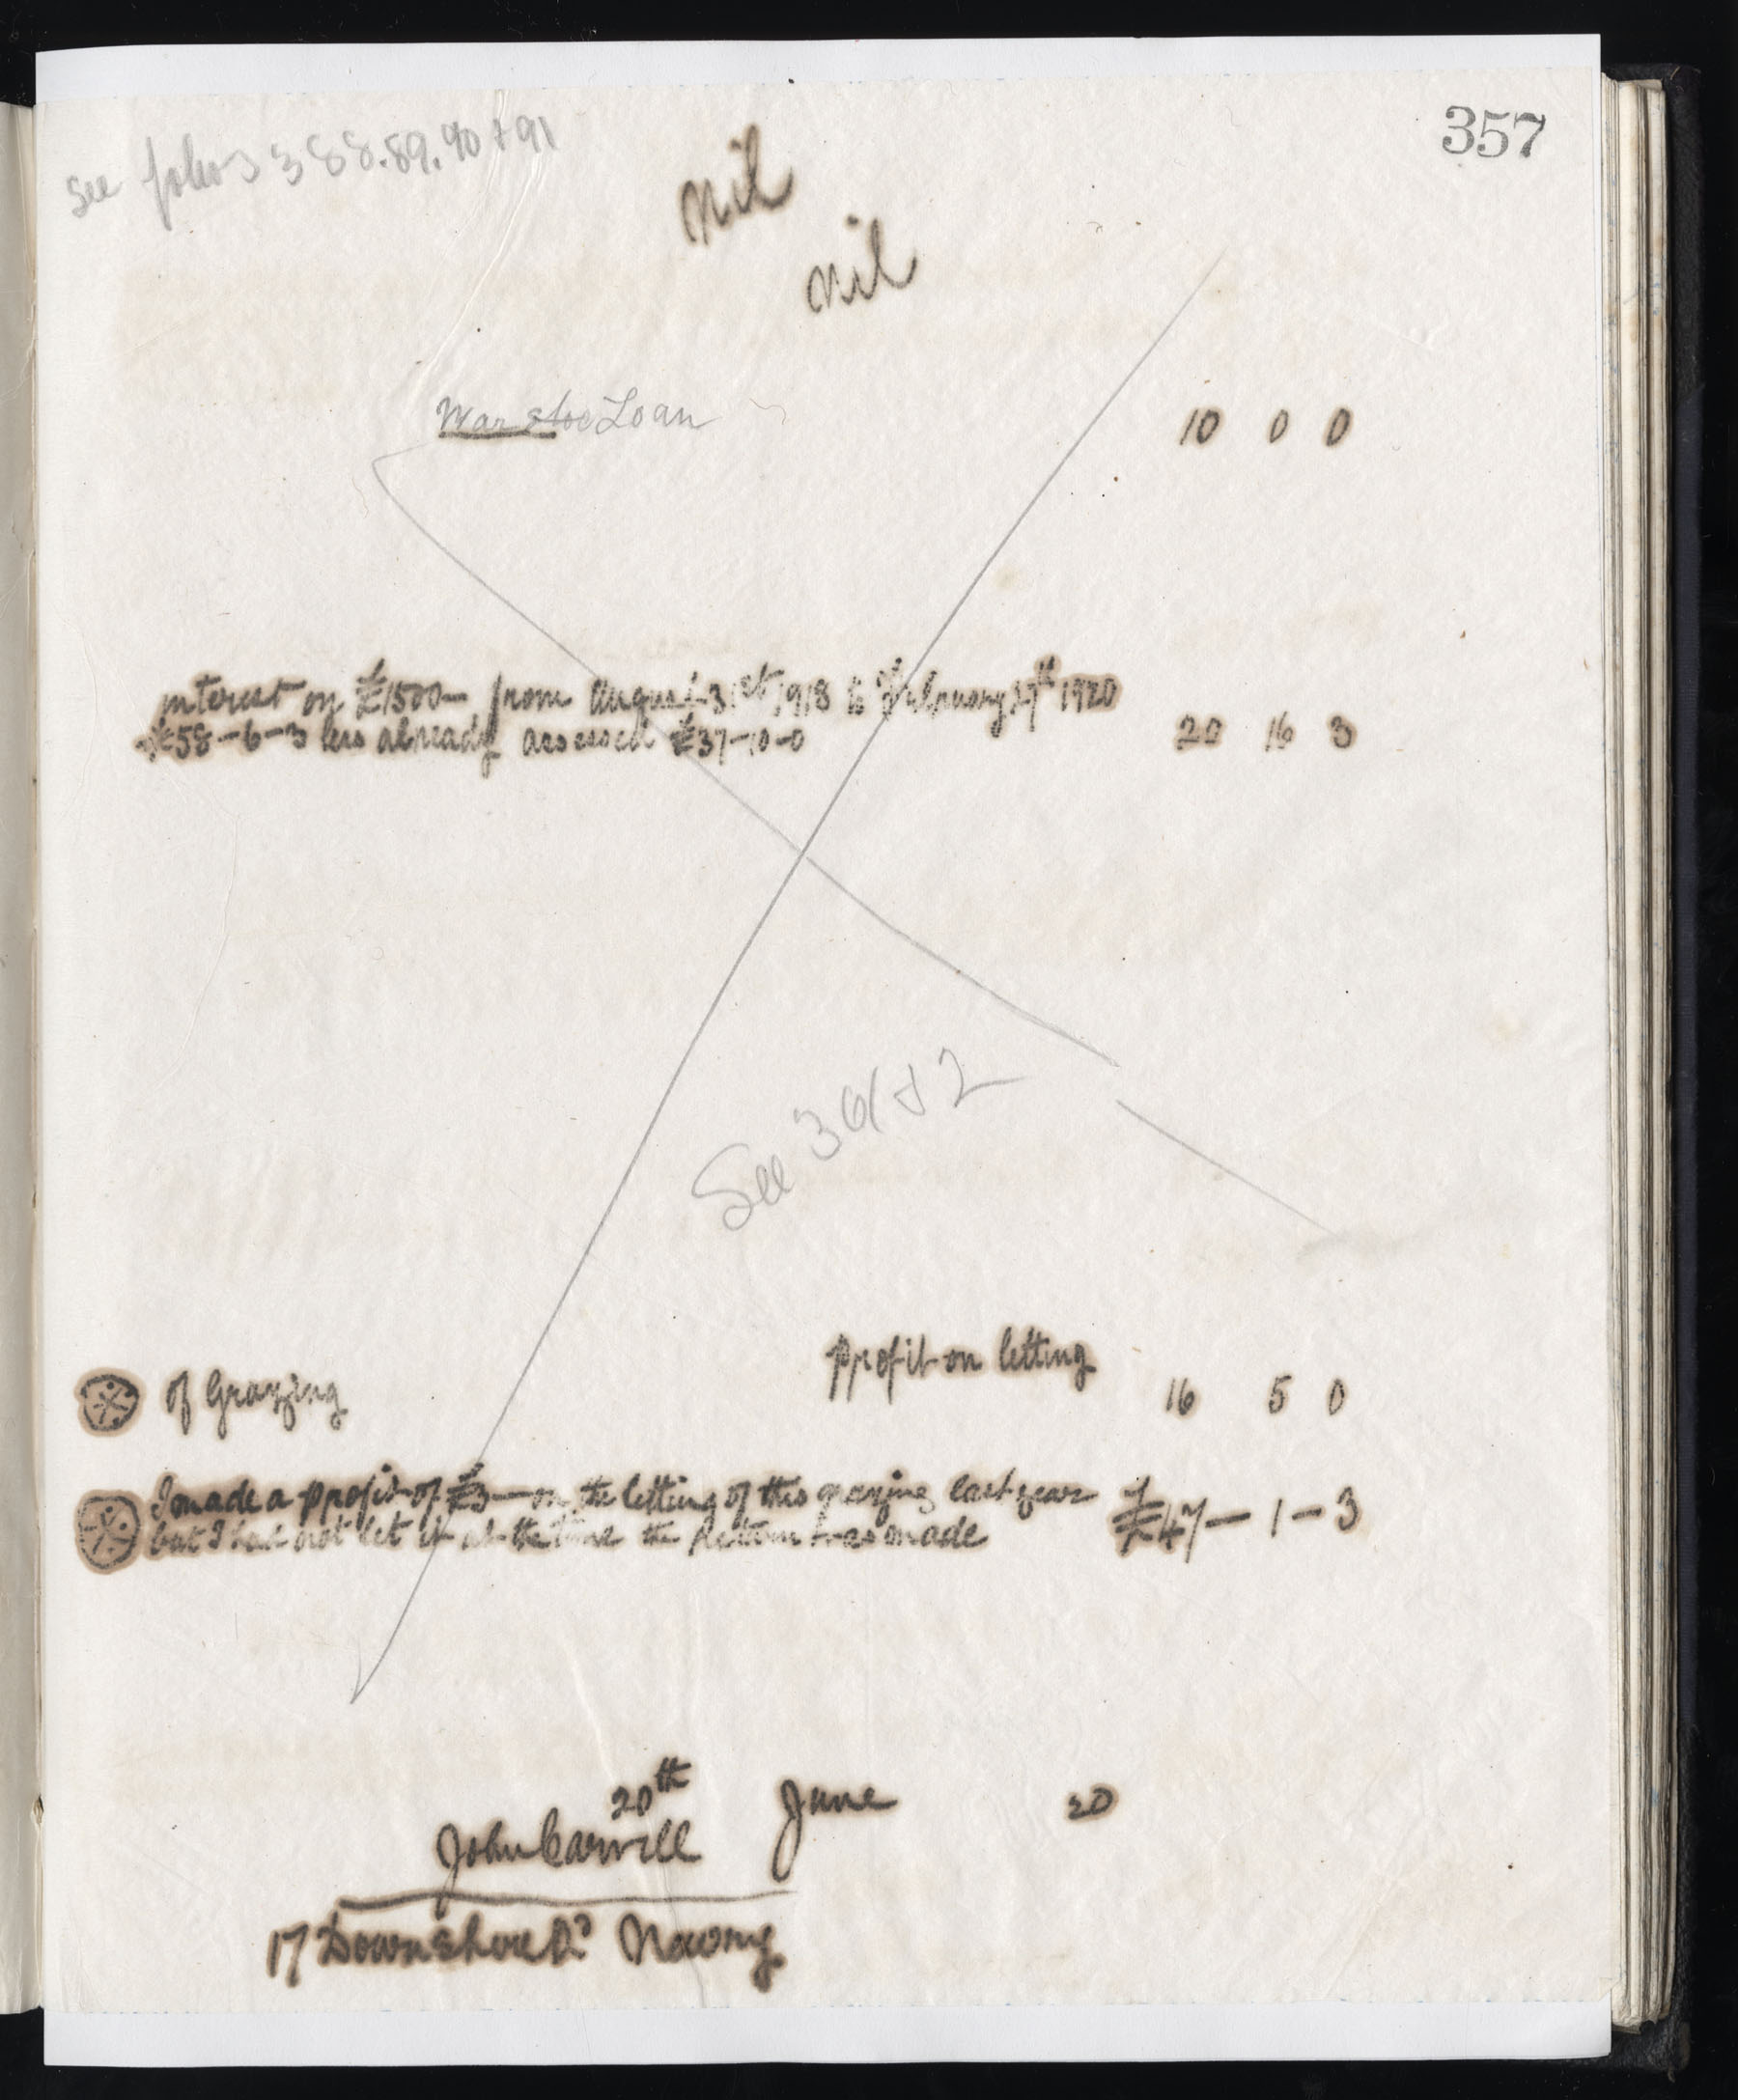 357
see folios 388.89.90 + 91
nil
nil
War Stoc Loan 10 0 0
interest on £1500— from August 31st 1918 to February 27th 1920
£58-6-3 less already assessed £37-10-0 20 16 3
See 391 & 2
profit on letting
of Grazing 16 5 0
I made a profit of £3— on the letting of this grazing last year
but I had not let it at the time the return was made £47-1-3
20th June 20
John Carvill
17 Downshire Rd Newry